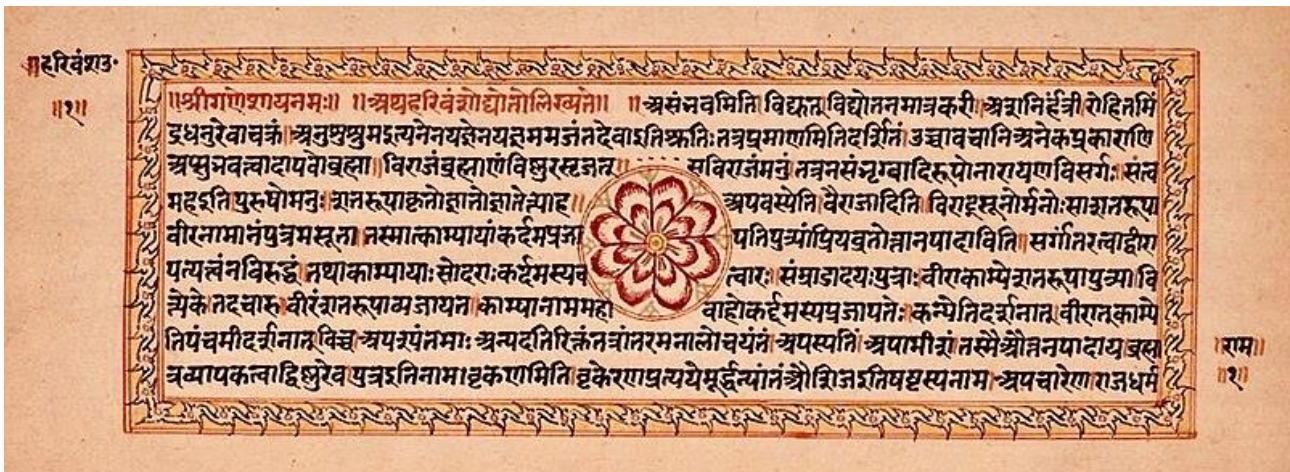 ॥हरिवंशउ॰
॥१॥
॥श्रीगणेशायनमः॥ ॥अथहरिवंशोद्योतोलिख्यते॥ ॥असंभवमिति विद्युत् विद्योतनमात्रकरी अशनिर्हंत्री रोहितमिं
द्रधनुरेवाचक्रं अनुष्टुप्सुमइत्यनेनयज्ञेनयज्ञममजंतदेवाइतिश्रुतिः तत्रप्रमाणमितिदर्शितं उच्चावचानि अनेकप्रकाराणि
अप्सुभवत्वादापवोब्रह्मा॥विराजंब्रह्माणंविष्णुरसृजत्॥ सविराजंमनुं तत्रनसंभृग्वादिरूपोनारायणविसर्गः संत्व
महइतिपुरुषोमनुः शतरूपाकृतो ॥ अपवस्येति वैराजादिति विराट्सूनोर्मनोः साशतरूपा
वीरनामानंपुत्रमसूता तस्मात्काम्यायांकर्दमप्रजा पतिपुत्र्यांप्रियव्रतोत्तानपादाविति सर्गांतरत्वाद्वीरा
पत्यत्वंनविरुद्धं तथाकाम्यायाः सोदराः कर्दमस्यच त्वारः संम्राडादयः पुत्राः वीराकाम्येशतरूपापुत्र्यावि
त्येके तदचारु वीरंशतरूपाव्यजायत काम्यानाममहा वाहोकर्द्दमस्यप्रजापतेः कन्येतिदर्शनात् वीरात्काम्ये
तिपंचमीदर्शनात् विच्च अपरूपंतमाः अन्यदतिरिक्तंतत्रांतरमनालोचयंतं अपस्यतिं अपामीशं तस्मैऔत्तनपादाय ब्रह्म
त्रव्यापकत्वाद्विष्णुरेव पुत्रइतिनाम वृकणमिति वृकेरणप्रत्ययेमूर्द्धन्यांतं औशिजइतिपष्टस्यनाम अपचारेणराजधर्म
राम॥
॥१॥